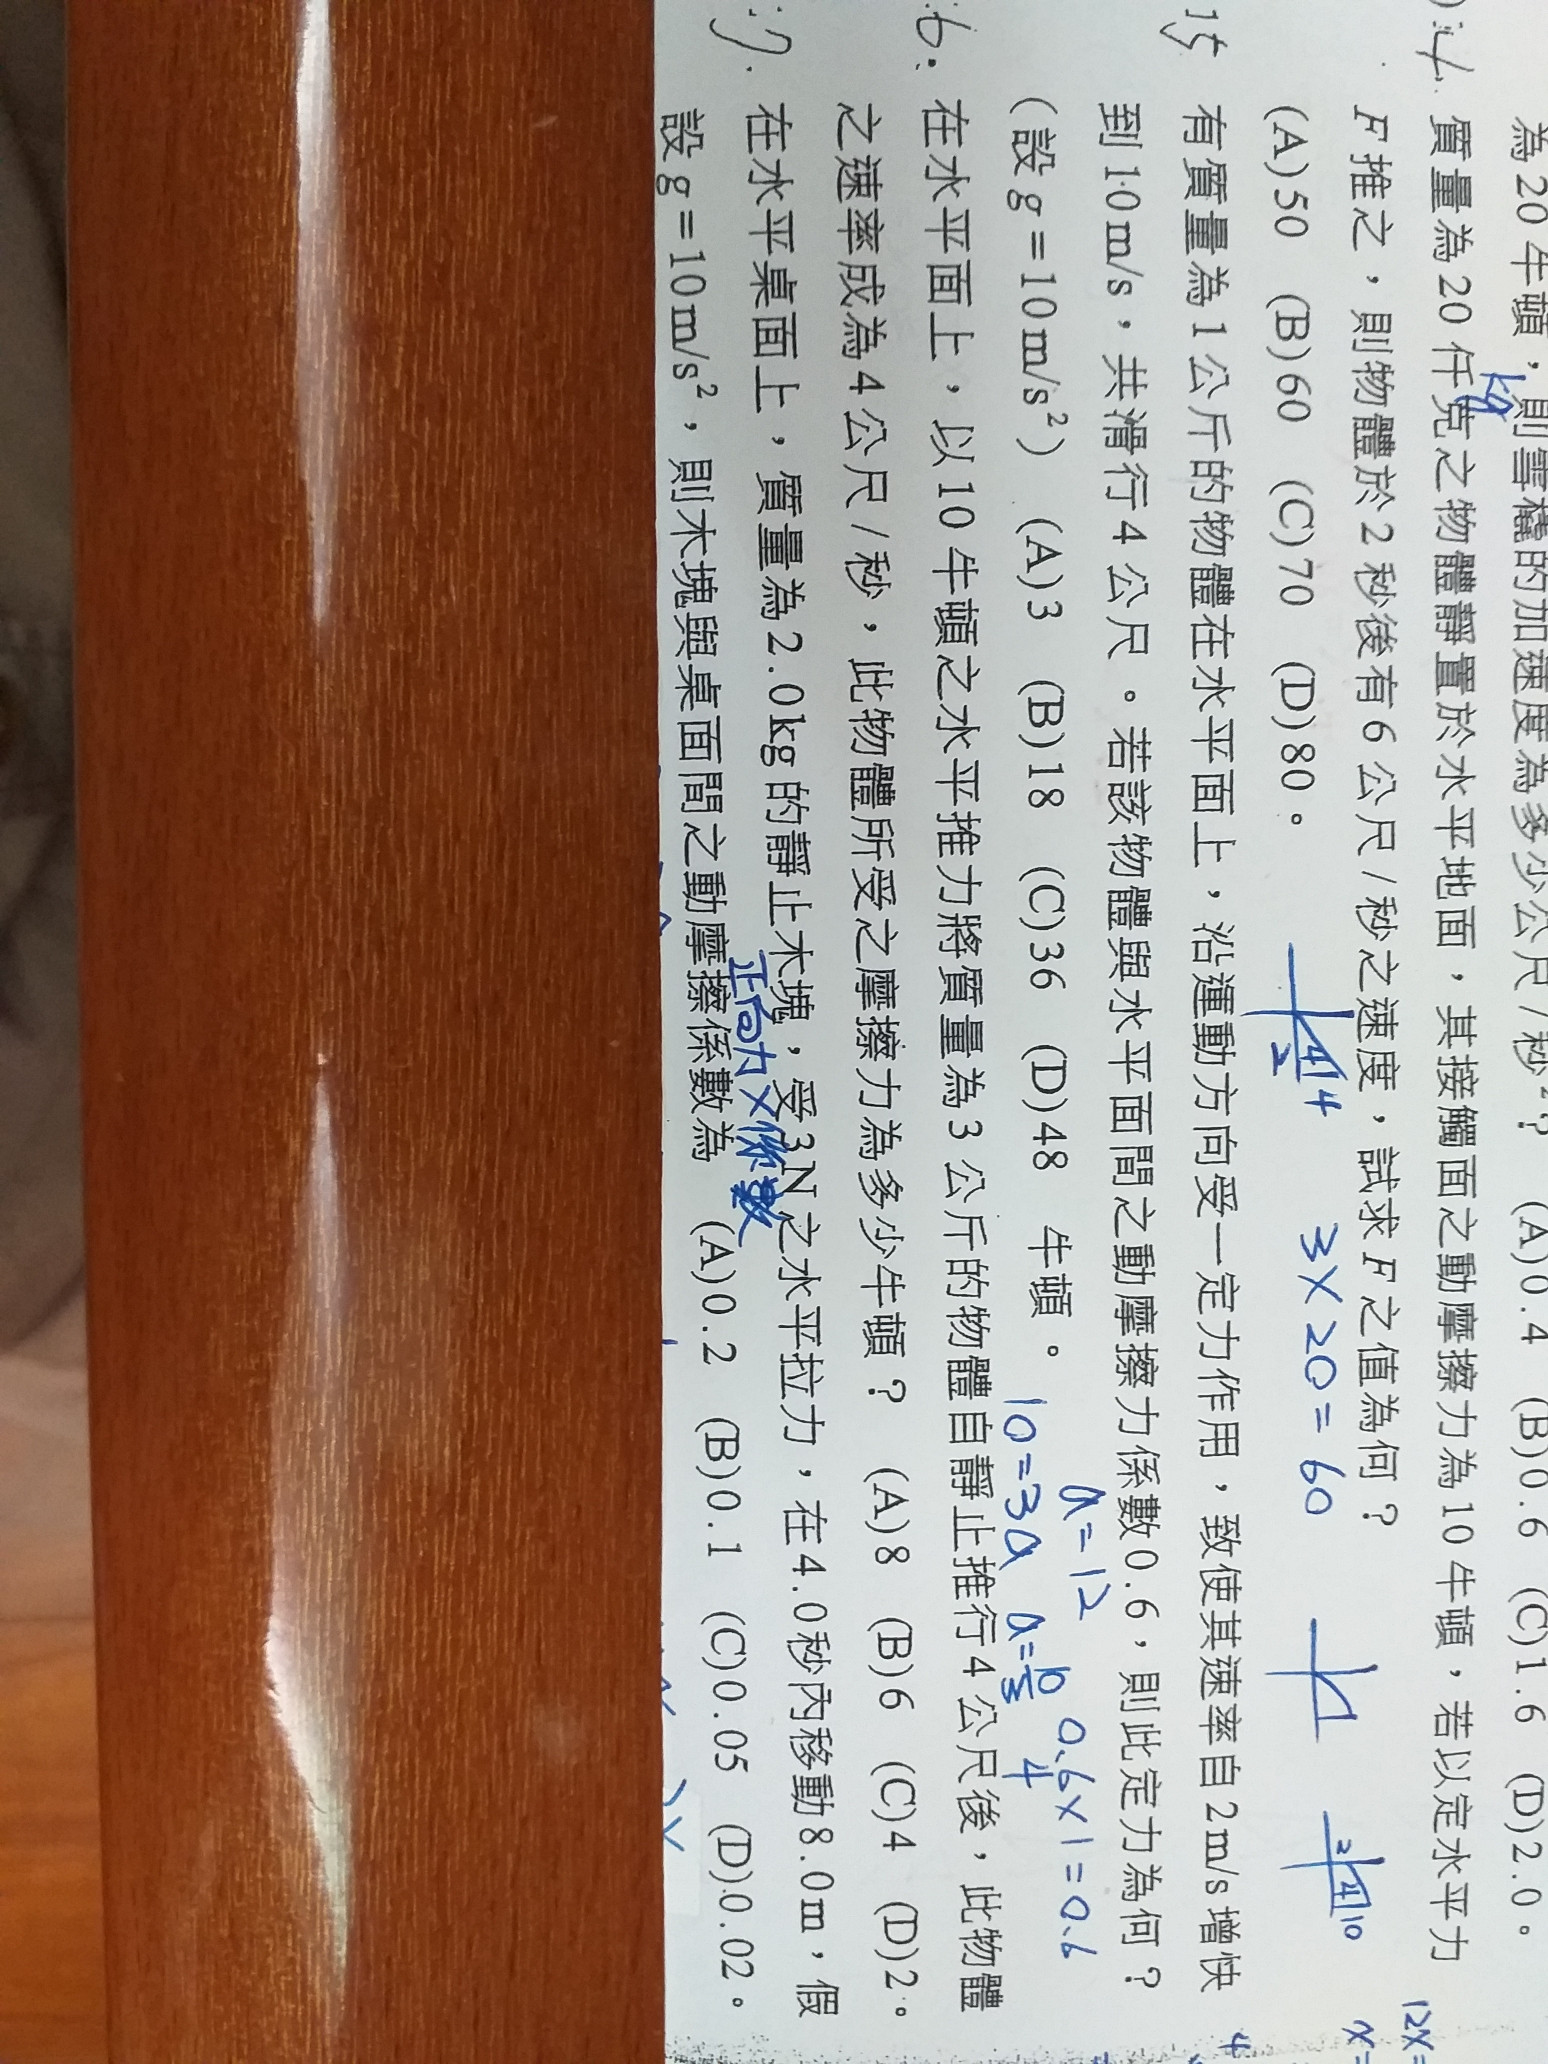 為20牛頓，則雪橇的加速度為多少公尺/秒²？ (A)0.4 (B)0.6 (C)1.6 (D)2.0。
kg
4. 質量為20仟克之物體靜置於水平地面，其接觸面之動摩擦力為10牛頓，若以定水平力
F推之，則物體於2秒後有6公尺/秒之速度，試求F之值為何？
(A)50 (B)60 (C)70 (D)80。
4 4 2
3×20=60
2 4 10
12x=
15 有質量為1公斤的物體在水平面上，沿運動方向受一定力作用，致使其速率自2m/s增快
到10m/s，共滑行4公尺。若該物體與水平面間之動摩擦力係數0.6，則此定力為何？
(設g=10m/s²) (A)3 (B)18 (C)36 (D)48 牛頓。
a=12
0.6×1=0.6
10=3a a=10/3 4
6. 在水平面上，以10牛頓之水平推力將質量為3公斤的物體自靜止推行4公尺後，此物體
之速率成為4公尺/秒，此物體所受之摩擦力為多少牛頓？ (A)8 (B)6 (C)4 (D)2。
7. 在水平桌面上，質量為2.0kg的靜止木塊，受3N之水平拉力，在4.0秒內移動8.0m，假
正向力×係數
設g=10m/s²，則木塊與桌面間之動摩擦係數為 (A)0.2 (B)0.1 (C)0.05 (D)0.02。